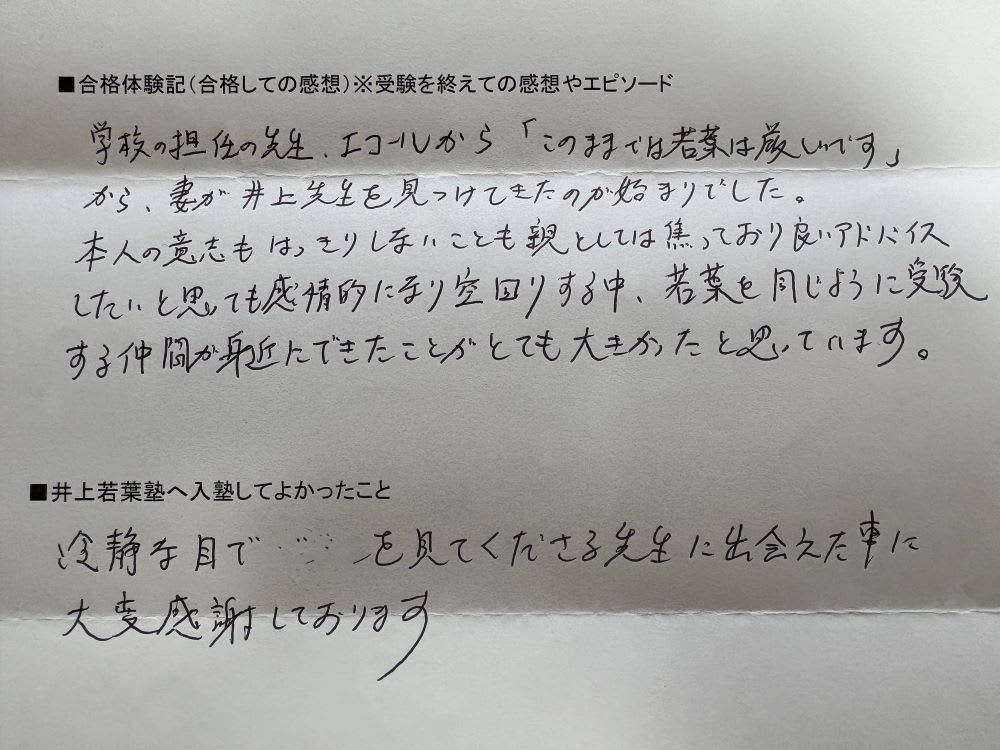 ■合格体験記(合格しての感想)※受験を終えての感想やエピソード
学校の担任の先生、エコールから「このままでは若葉は厳しいです」
から、妻が井上先生を見つけてきたのが始まりでした。
本人の意志もはっきりしないことも親としては焦っており良いアドバイス
したいと思っても感情的になり空回りする中、若葉を同じように受験
する仲間が身近にできたことがとても大きかったと思っています。
■井上若葉塾へ入塾してよかったこと
冷静な目で を見てくださる先生に出会えた事に
大変感謝しております